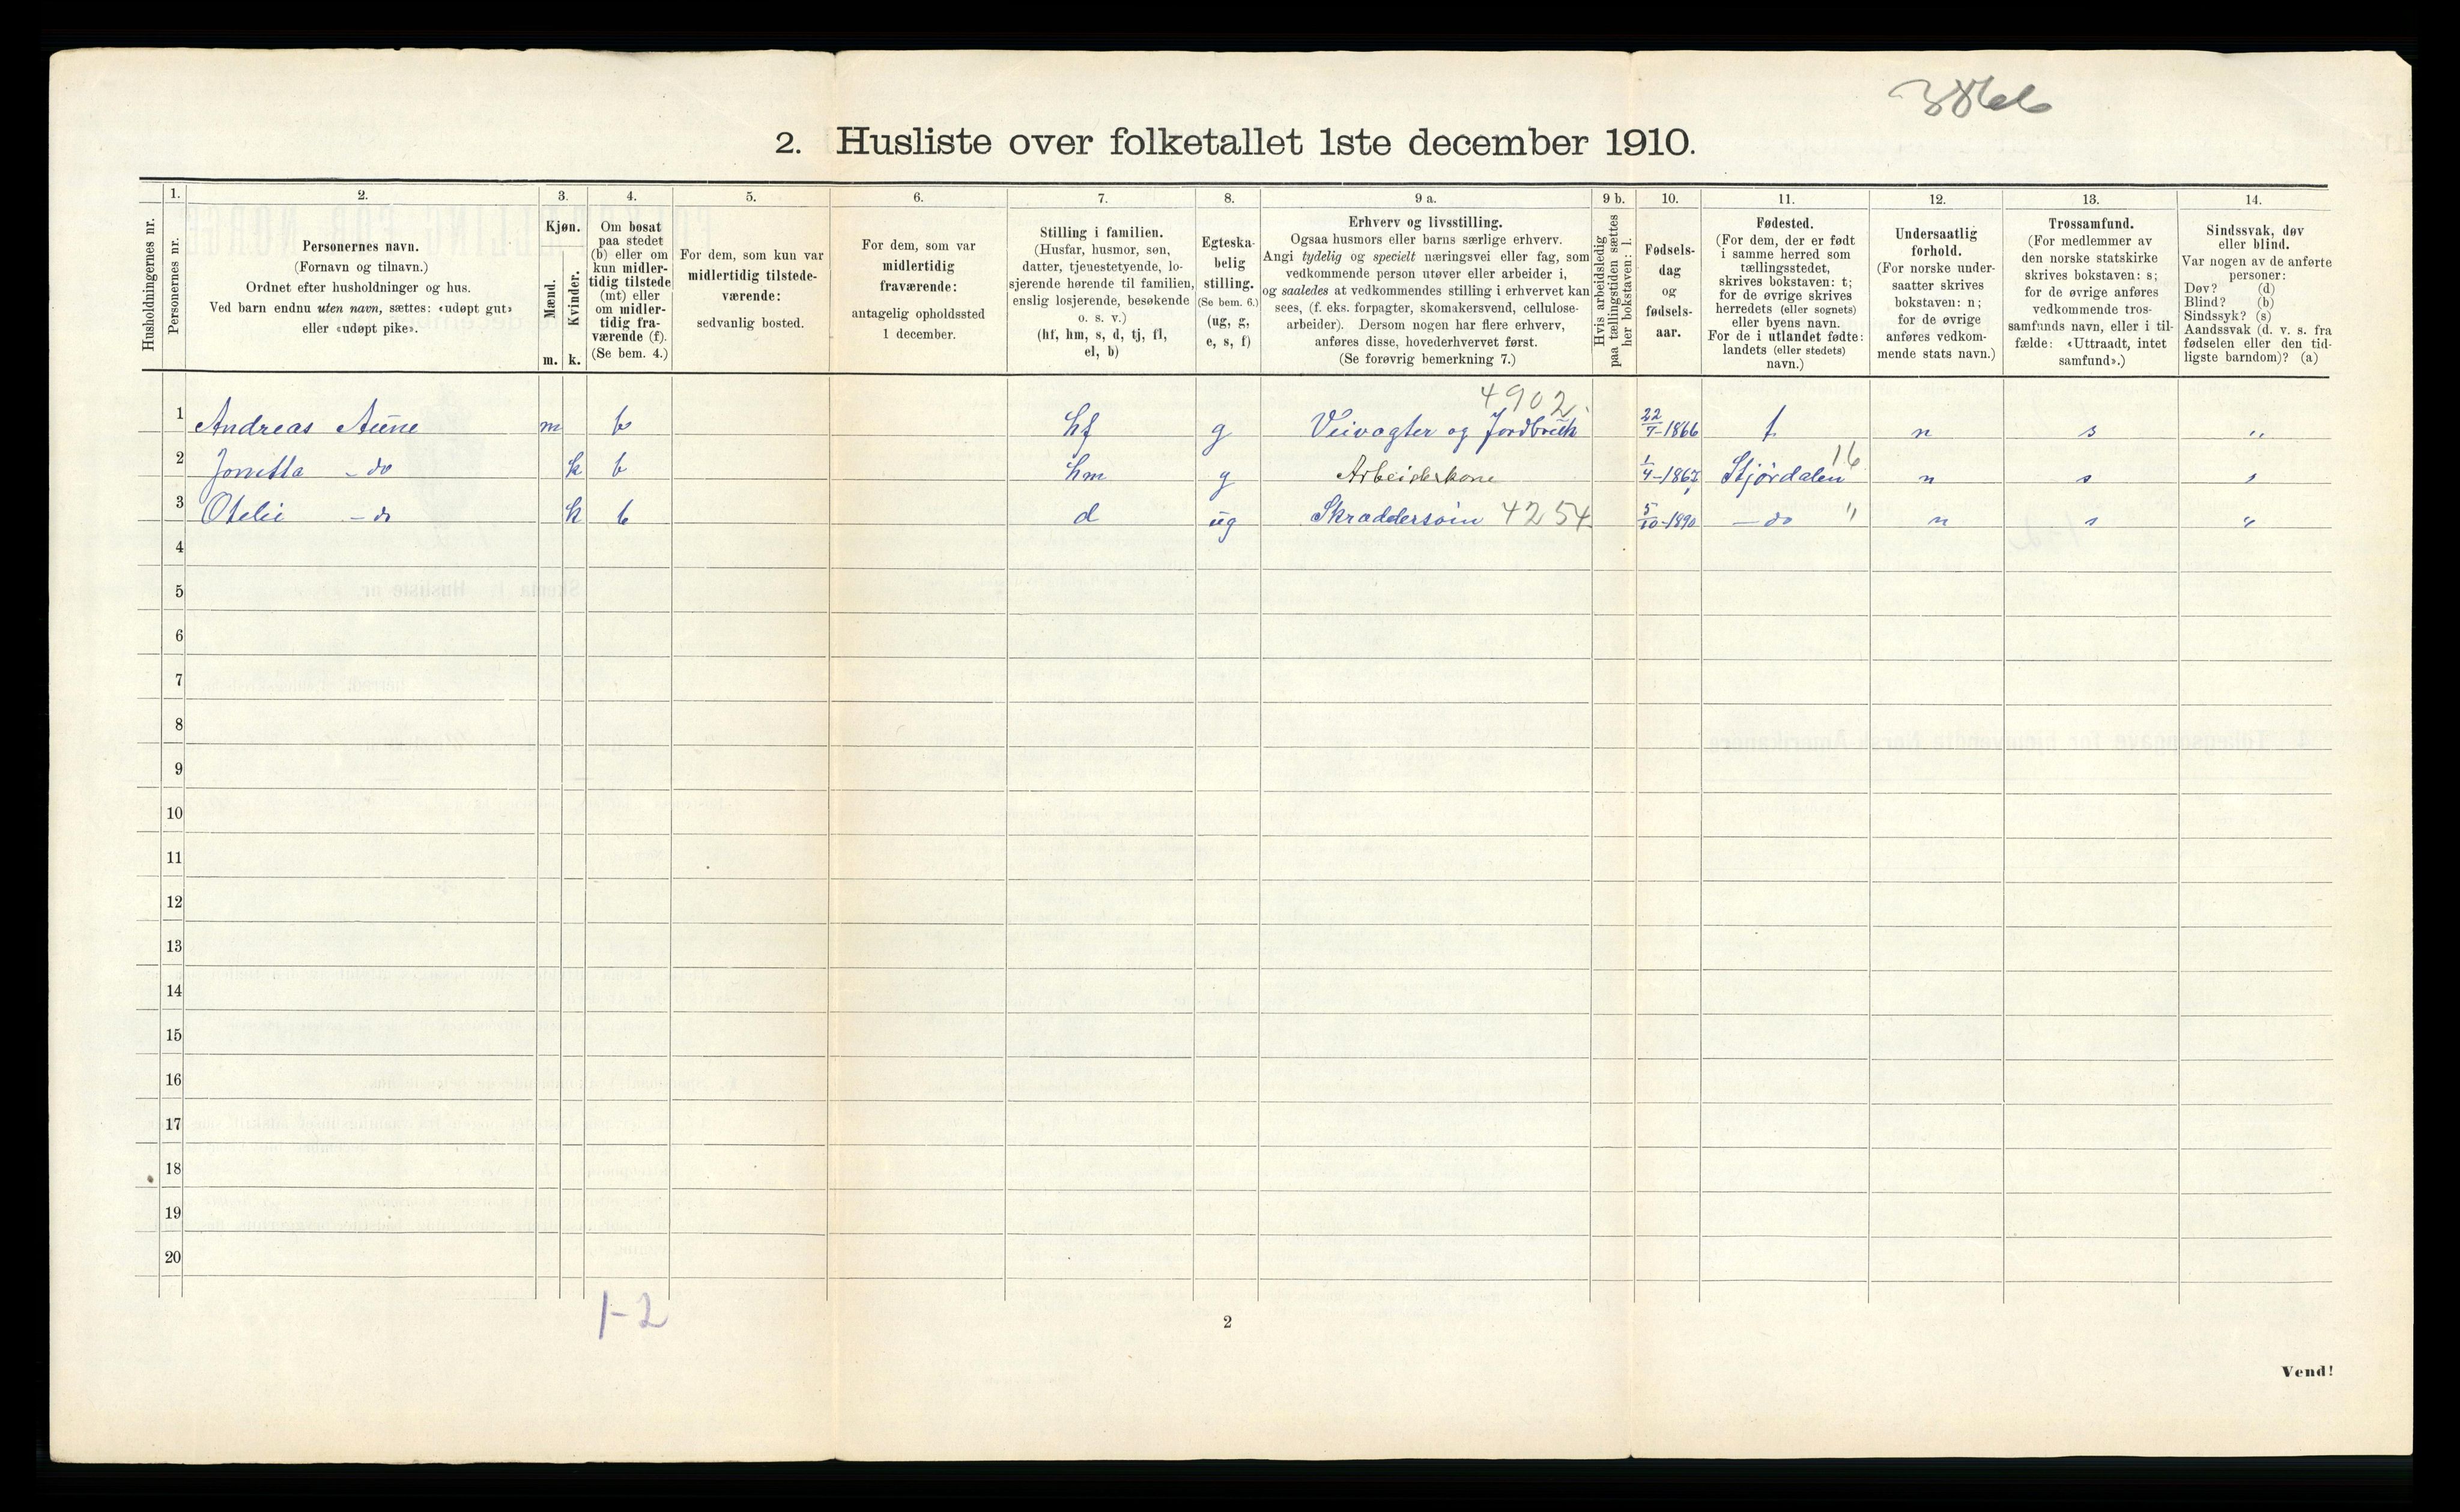 2. Husliste over folketallet 1ste december 1910.
Husholdningernes nr.
1.
Personernes nr.
2.
Personernes navn.
(Fornavn og tilnavn.)
Ordnet efter husholdninger og hus.
Ved barn endnu uten navn, sættes: «udøpt gut»
eller «udøpt pike».
3.
Kjøn.
Mænd.
Kvinder.
m. k.
4.
Om bosat
paa stedet
(b) eller om
kun midler-
tidig tilstede
(mt) eller
om midler-
tidig fra-
værende (f).
(Se bem. 4.)
5.
For dem, som kun var
midlertidig tilstede-
værende:
sedvanlig bosted.
6.
For dem, som var
midlertidig
fraværende:
antagelig opholdssted
1 december.
7.
Stilling i familien.
(Husfar, husmor, søn,
datter, tjenestetyende, lo-
sjerende hørende til familien,
enslig losjerende, besøkende
o. s. v.)
(hf, hm, s, d, tj, fl,
el, b)
8.
Egteska-
belig
stilling.
(Se bem. 6.)
(ug, g,
e, s, f)
9 a.
Erhverv og livsstilling.
Ogsaa husmors eller barns særlige erhverv.
Angi tydelig og specielt næringsvei eller fag, som
vedkommende person utøver eller arbeider i,
og saaledes at vedkommendes stilling i erhvervet kan
sees, (f. eks. forpagter, skomakersvend, cellulose-
arbeider). Dersom nogen har flere erhverv,
anføres disse, hovederhvervet først.
(Se forøvrig bemerkning 7.)
9 b.
Hvis arbeidsledig
paa tællingstiden sættes
her bokstaven: l.
10.
Fødsels-
dag
og
fødsels-
aar.
11.
Fødested.
(For dem, der er født
i samme herred som
tællingsstedet,
skrives bokstaven: t;
for de øvrige skrives
herredets (eller sognets)
eller byens navn.
For de i utlandet fødte:
landets (eller stedets)
navn.)
12.
Undersaatlig
forhold.
(For norske under-
saatter skrives
bokstaven: n;
for de øvrige
anføres vedkom-
mende stats navn.)
13.
Trossamfund.
(For medlemmer av
den norske statskirke
skrives bokstaven: s;
for de øvrige anføres
vedkommende tros-
samfunds navn, eller i til-
fælde: «Uttraadt, intet
samfund».)
14.
Sindssvak, døv
eller blind.
Var nogen av de anførte
personer:
Døv? (d)
Blind? (b)
Sindssyk? (s)
Aandssvak (d. v. s. fra
fødselen eller den tid-
ligste barndom)? (a)
4902
1 Andreas Aune m b hf g Veivogter og Jordbruk 22/7-1866 t n s "
2 Jonetta - do k b hm g Arbeiderkone 1/4- Stjørdalen 16 n s "
3 Otelie - do k b d ug Skræddersøm 4254 5/10-1890 - do " n s "
4
5
6
7
8
9
10
11
12
13
14
15
16
17
18
19
20
1-2
2
Vend!